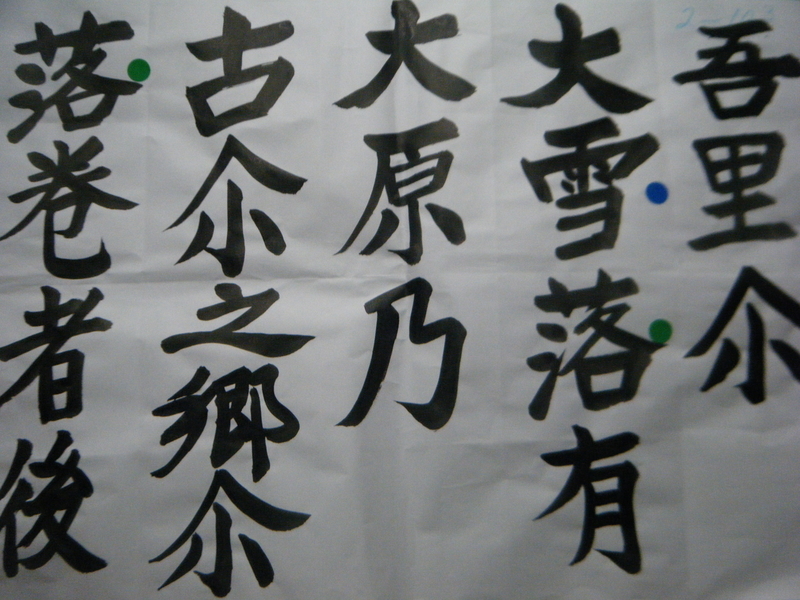 2-103
吾里尒
大雪落有
大原乃
古尒之郷尒
落巻者後